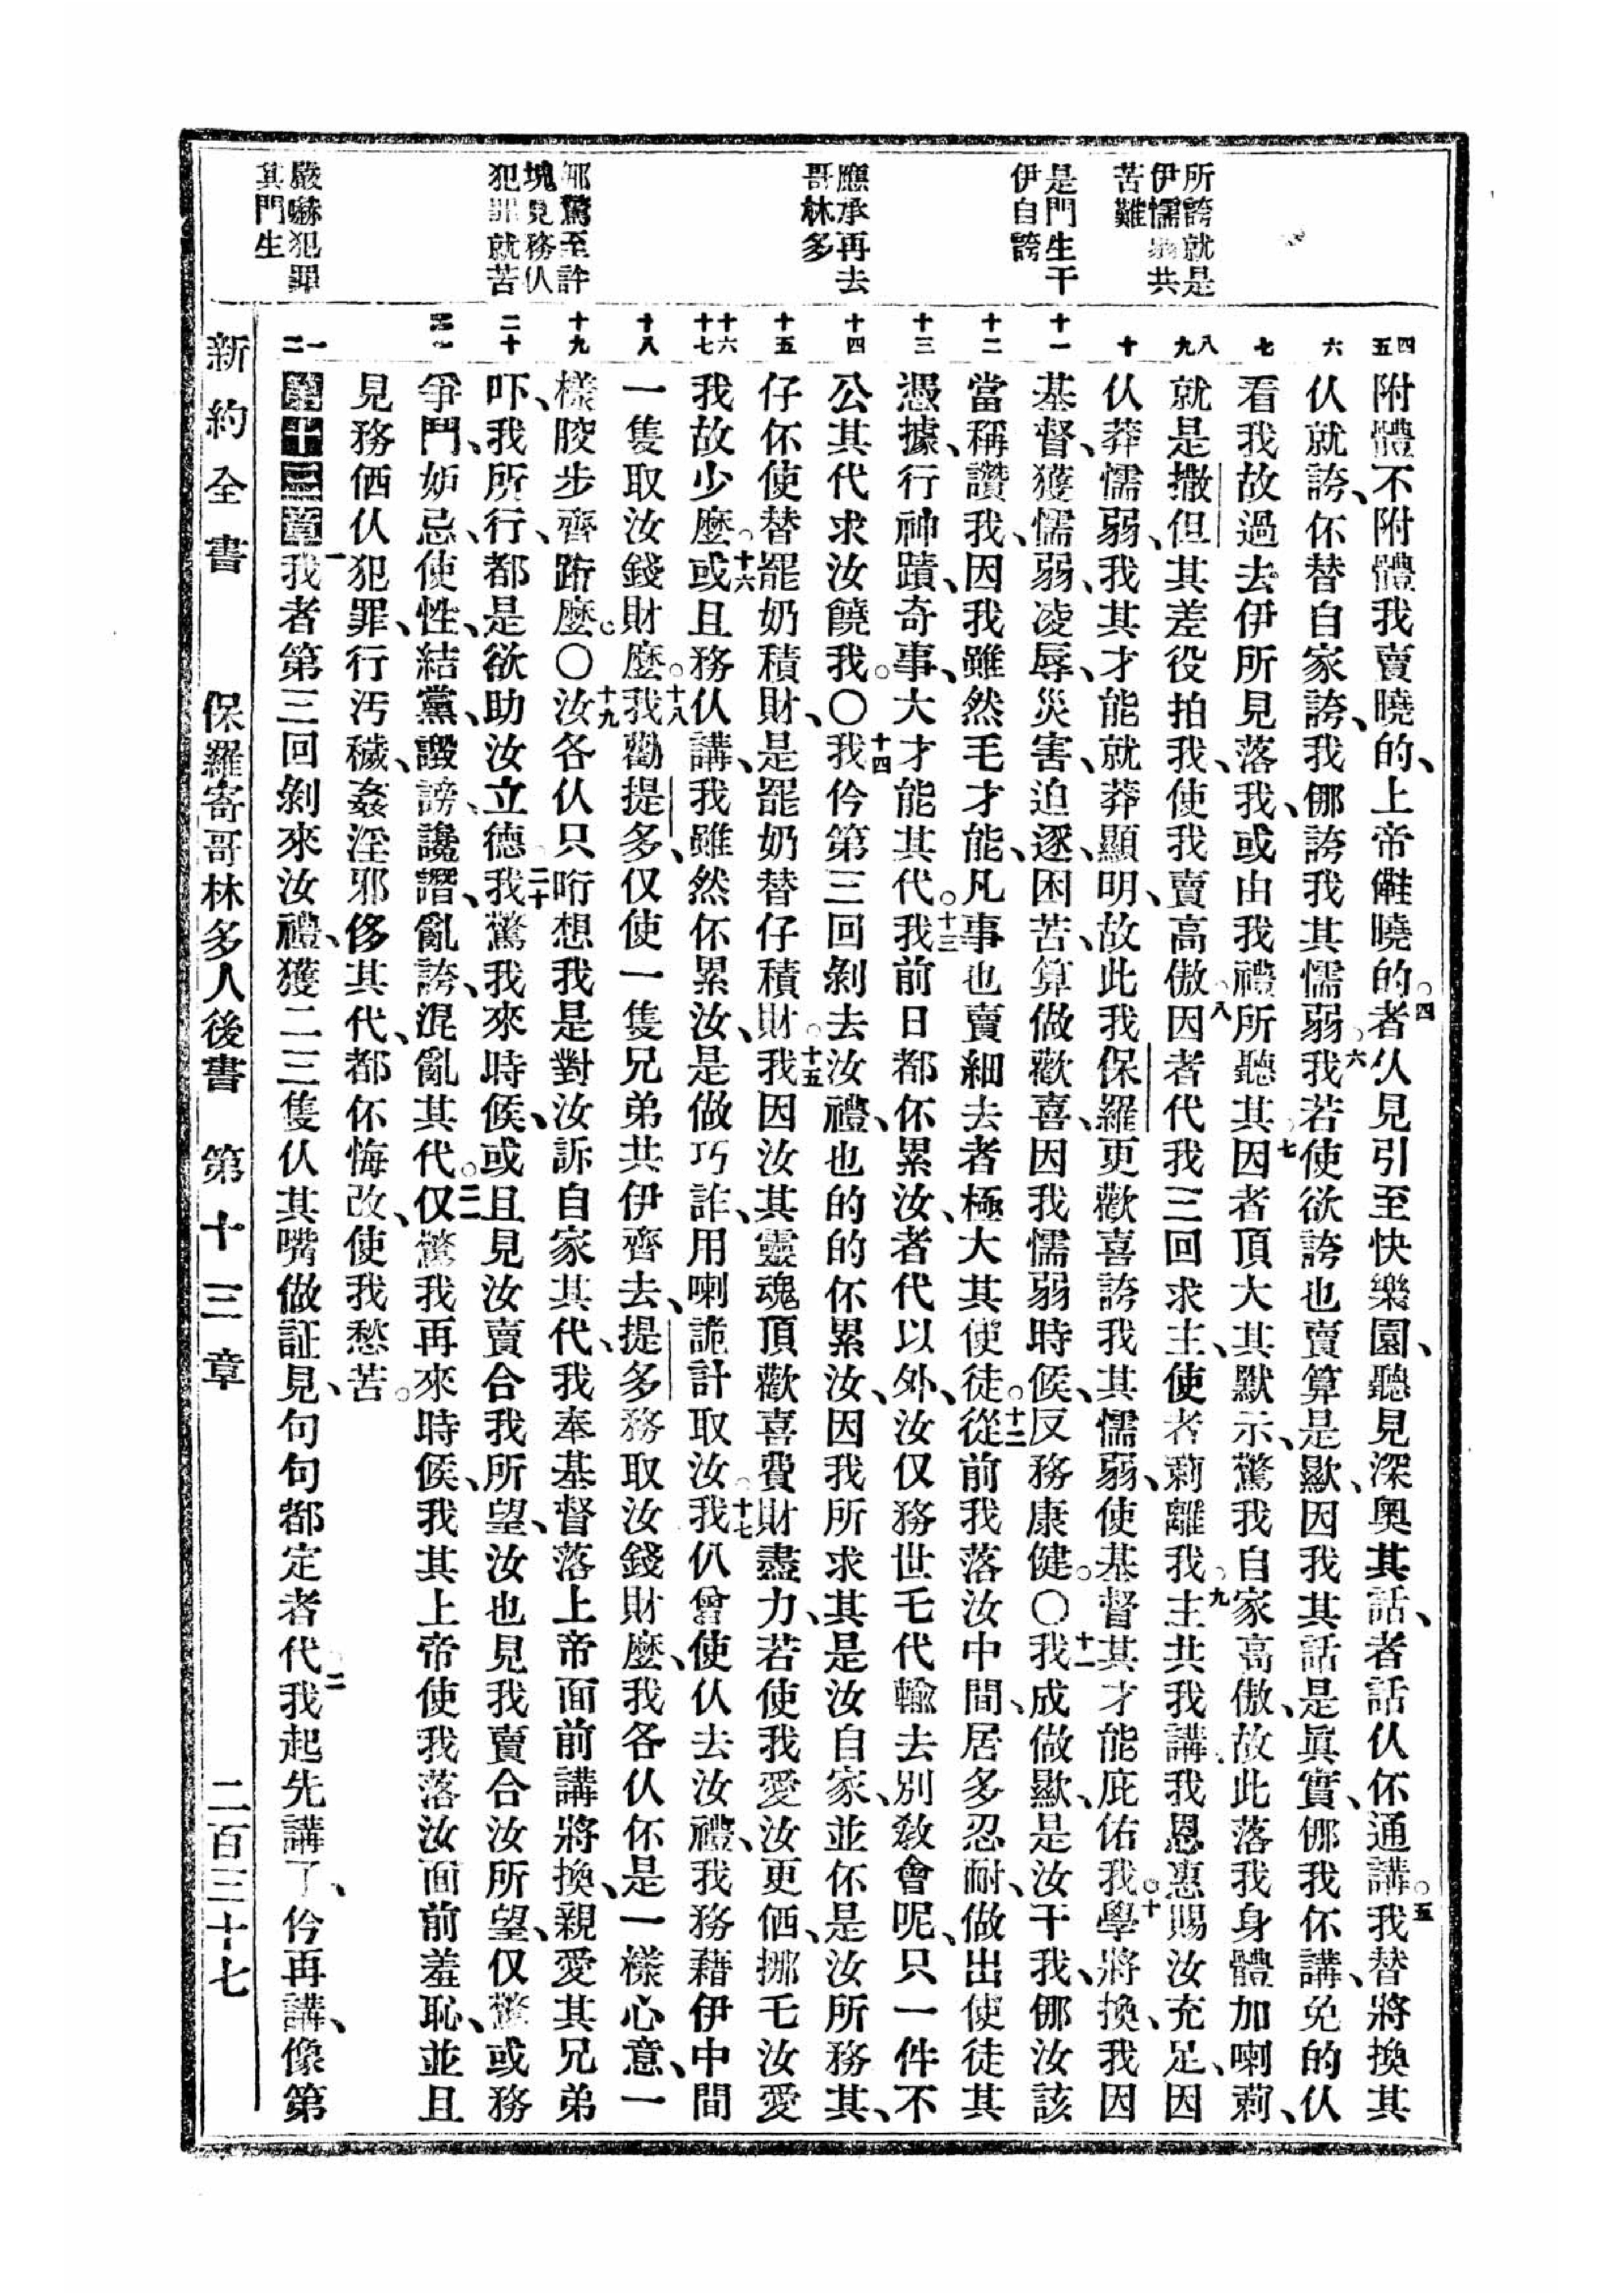 所誇就是
伊懦弱共
苦難
是門生干
伊自誇
應承再去
哥林多
那驚至許
塊見務仈
犯罪就苦
嚴嚇犯罪
其門生
四
五
六
七
八
九
十
十一
十二
十三
十四
十五
十六
十七
十八
十九
二十
二一
一
二
附體不附體我賣曉的、上帝𠆧曉的。四者仈見引至快樂園、聽見深奧其話、者話仈伓通講。五我替將換其
仈就誇、伓替自家誇、我㑚誇我其懦弱。六我若使欲誇也賣算是歞、因我其話是眞實、㑚我伓講、免的仈
看我故過去伊所見落我、或由我禮所聽其。七因者頂大其默示、驚我自家高傲、故此落我身體加喇莿、
就是撒但其差役拍我、使我賣高傲。八因者代我三回求主、使者莿離我。九主共我講、我恩惠賜汝充足、因
仈莽懦弱、我其才能就莽顯明、故此我保羅更歡喜誇我其懦弱、使基督其才能庇佑我。十學將換、我因
基督、獲懦弱、凌辱、災害、迫逐、困苦、算做歡喜、因我懦弱時候、反務康健。○十一我成做歞、是汝干我、㑚汝該
當稱讚我、因我雖然毛才能、凡事也賣細去者極大其使徒。十二從前我落汝中間、居多忍耐、做出使徒其
憑據、行神蹟、奇事、大才能其代。十三我前日都伓累汝、者代以外、汝仅務世乇代輸去別敎會呢、只一件不
公其代求汝饒我。○十四我仱第三回剝去汝禮、也的的伓累汝、因我所求其是汝自家、並伓是汝所務其、
仔伓使替罷奶積財、是罷奶替仔積財。十五我因汝其靈魂頂歡喜費財盡力、若使我愛汝更㑚、挪乇汝愛
我故少麽。十六或且務仈講、我雖然伓累汝、是做巧詐、用喇詭計取汝。十七我仈曾使仈去汝禮、我務藉伊中間
一隻取汝錢財麽。十八我勸提多、仅使一隻兄弟共伊齊去、提多務取汝錢財麽、我各仈伓是一樣心意、一
樣骹步齊跡麽。○十九汝各仈只哘想我是對汝訴自家其代、我奉基督落上帝面前講將換、親愛其兄弟
吓、我所行都是欲助汝立德。二十我驚我來時候、或且見汝賣合我所望、汝也見我賣合汝所望、仅驚或務
爭鬥、妒忌、使性、結黨、譭謗、讒譖、亂誇、混亂其代。二一仅驚我再來時候、我其上帝使我落汝面前羞恥、並且
見務価仈犯罪、行污穢、姦淫邪侈其代、都伓悔改、使我愁苦。
第十三章一我者第三回剝來汝禮、獲二三隻仈其嘴做証見、句句都定者代。二我起先講了、仱再講、像第
新約全書 保羅寄哥林多人後書 第十三章 二百三十七